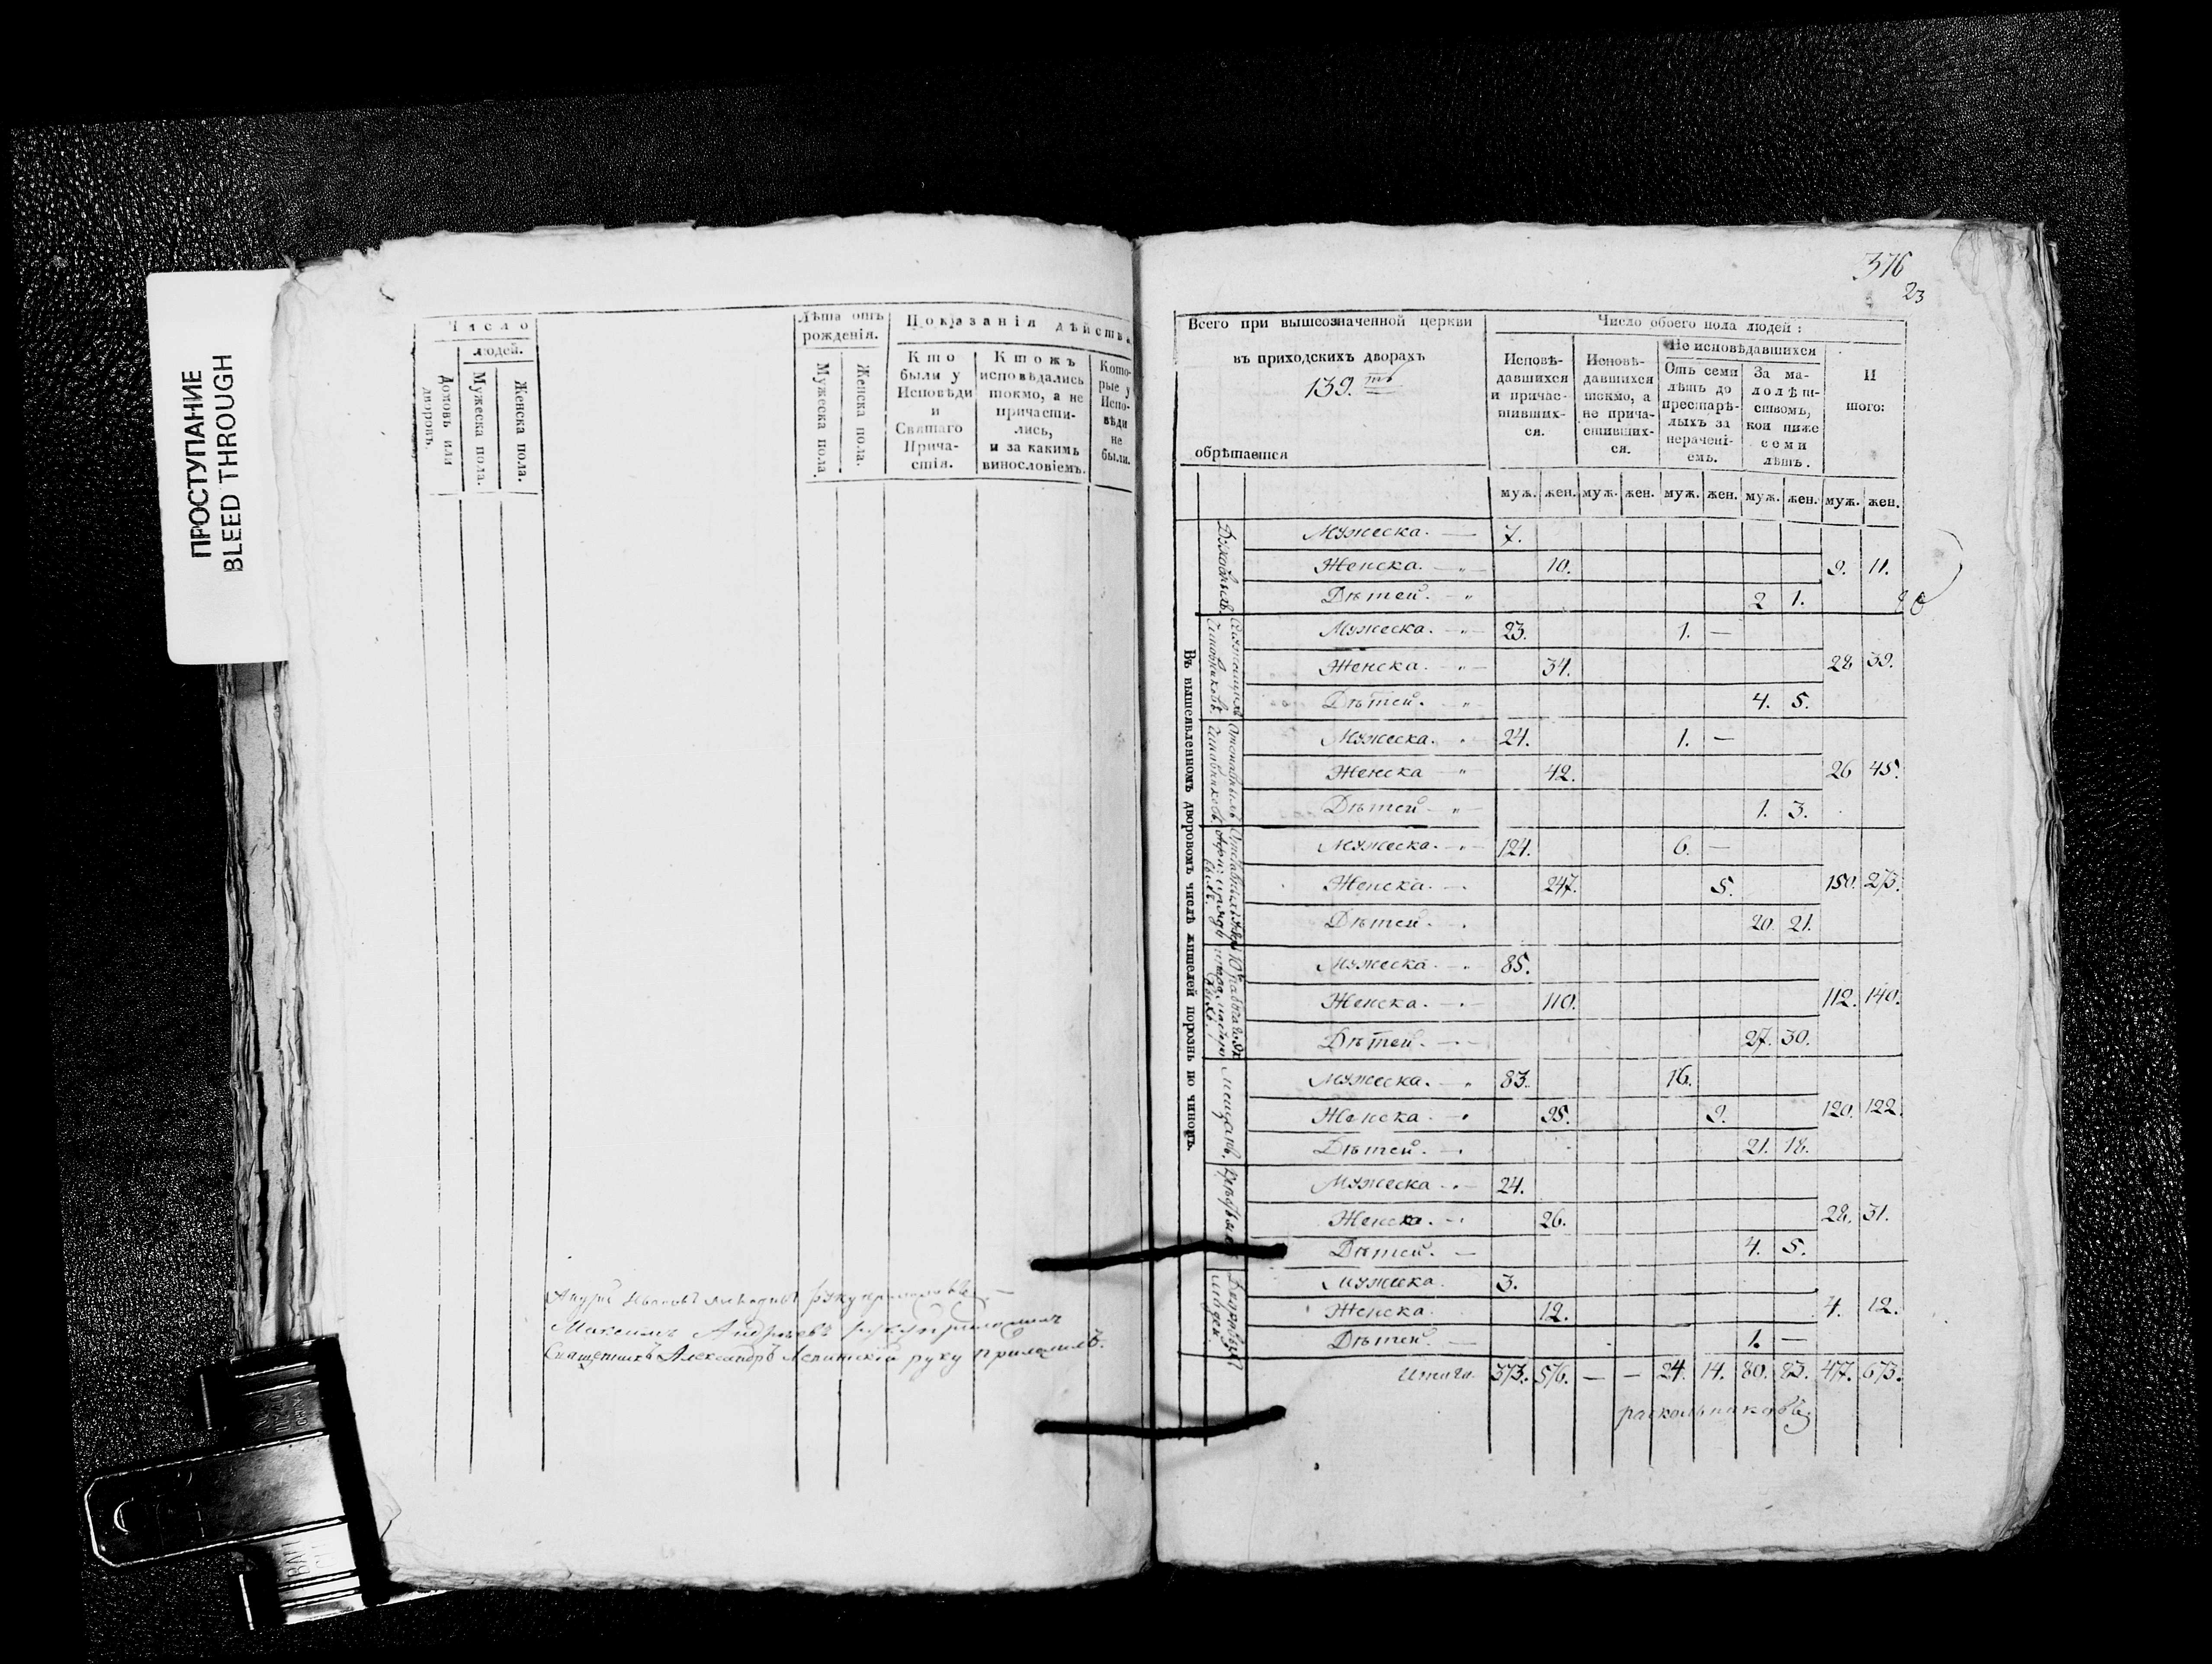 ПРОСТУПАНИЕ
BLEED THROUGH
Число
людей.
Домовъ или дворовъ.
Мужеска пола.
Женска пола.
Лѣта отъ рожденія.
Мужеска пола
Женска пола.
Показанія дѣйства
Кто были у Исповѣди и Святаго Причастія.
Ктожъ исповѣдались токмо, а не причастились, и за какимъ винословіемъ.
Которые у Исповѣди не были.
руку приложилъ
Максимъ Андреевъ руку приложилъ
Священникъ Александръ руку приложилъ.
376
23
Всего при вышеозначенной церкви
въ приходскихъ дворахъ
139.
обрѣтается
Число обоего пола людей:
Исповѣдавшихся и причастившихся.
Исповѣдавшихся токмо, а не причастившихся.
Не исповѣдавшихся
Отъ семи лѣтъ до престарѣлыхъ за нерачені-емъ.
За малолѣтствомъ, кои ниже семи лѣтъ.
Итого:
муж. жен. муж. жен. муж. жен. муж. жен. муж. жен.
Въ вышеявленномъ дворовомъ числѣ жителей порознь по чиномъ.
Духовныхъ.
Мужеска. 7.
Женска. 10. 9. 11.
Дѣтей. 2 1.
Мужеска. 23. 1. —
Женска. 34. 28 39.
Дѣтей. 4. 5.
Мужеска. 24. 1. —
Женска 42. 26 45.
Дѣтей 1. 3.
Мужеска. 124. 6. —
Женска. 247. 5. 150. 273.
Дѣтей. 20. 21.
Мужеска. 85.
Женска. 110. 112. 140.
Дѣтей. 27. 30.
Мещанъ.
Мужеска. 83. 16.
Женска. 95. 9. 120. 122.
Дѣтей. 21. 18.
Мужеска 24.
Женска. 26. 28. 31.
Дѣтей. 4. 5.
людей.
Мужеска. 3.
Женска. 12. 4. 12.
Дѣтей. 1. —
Итого. 373. 576. — — 24. 14. 80. 83. 477. 673.
раскольниковъ